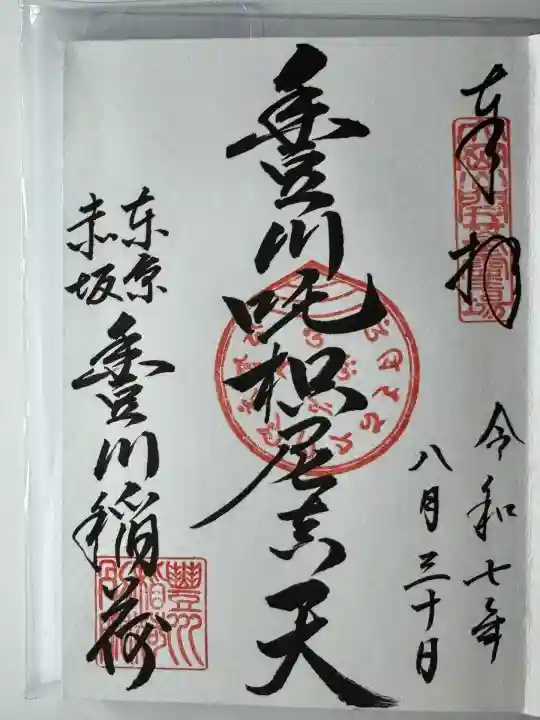 奉拝
令和七年
八月三十日
豊川吒枳尼真天
東京
赤坂
豊川稲荷